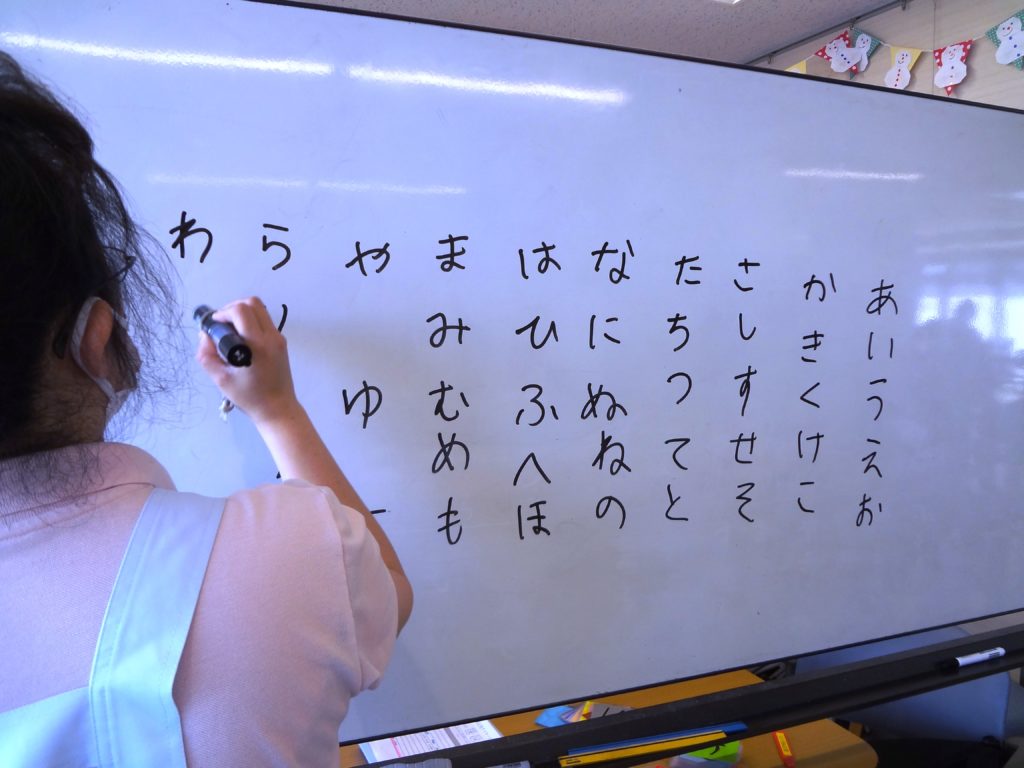 あいうえお
かきくけこ
さしすせそ
たちつてと
なにぬねの
はひふへほ
まみむめも
やゆ
ら
わ